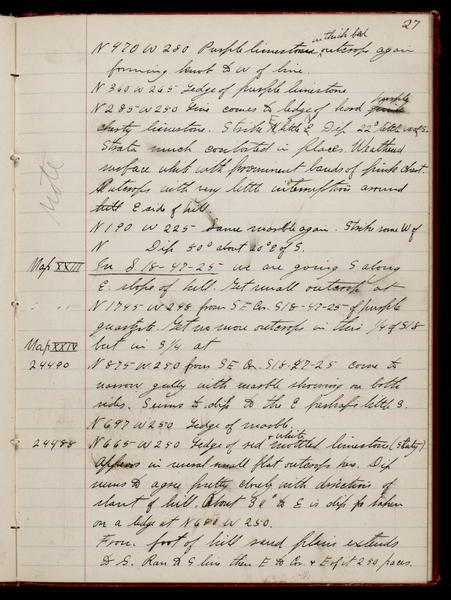 27
in thick bed
N 470 W 280 Purple limestone outcrops again
forming knob to W of line.
N 340 W 265 Ledge of purple limestone
N 285 W 250 Line comes to ledge of hard purple
cherty limestone. Strike E little Dip 22° little W of S.
Strata much contorted in places. Weathered
surface white with prominent bands of pink chert.
Outcrops with very little interruption around
hill E side of hill.
Note
N 190 W 225 Same marble again. Strike some W of
N Dip 50° about 20° E of S.
Map XXIII In S. 18-47-25 we are going S along
E. slope of hill. Get small outcrop at
N 1745 W 298 from S E Cor. S18-47-25 of purple
quartzite. Get no more outcrops in this 1/4 of S18
Map XXIV but in S 1/4 at
24490 N 875 W 250 from S E Cor. S18-47-25 come to
narrow gully with marble showing on both
sides. Seems to dip to the E perhaps little S.
N 697 W 250 Ledge of marble.
+ white
24488 N 665 W 250 Ledge of red mottled limestone (Slaty)
Appears in usual small flat outcrops Dip
seems to agree pretty closely with direction of
slant of hill. About 30° to E is dip taken
on a ledge at N 600 W 250.
From foot of hill sand plain extends
to S. Ran to S line then E to Cor. + E of it 250 paces.